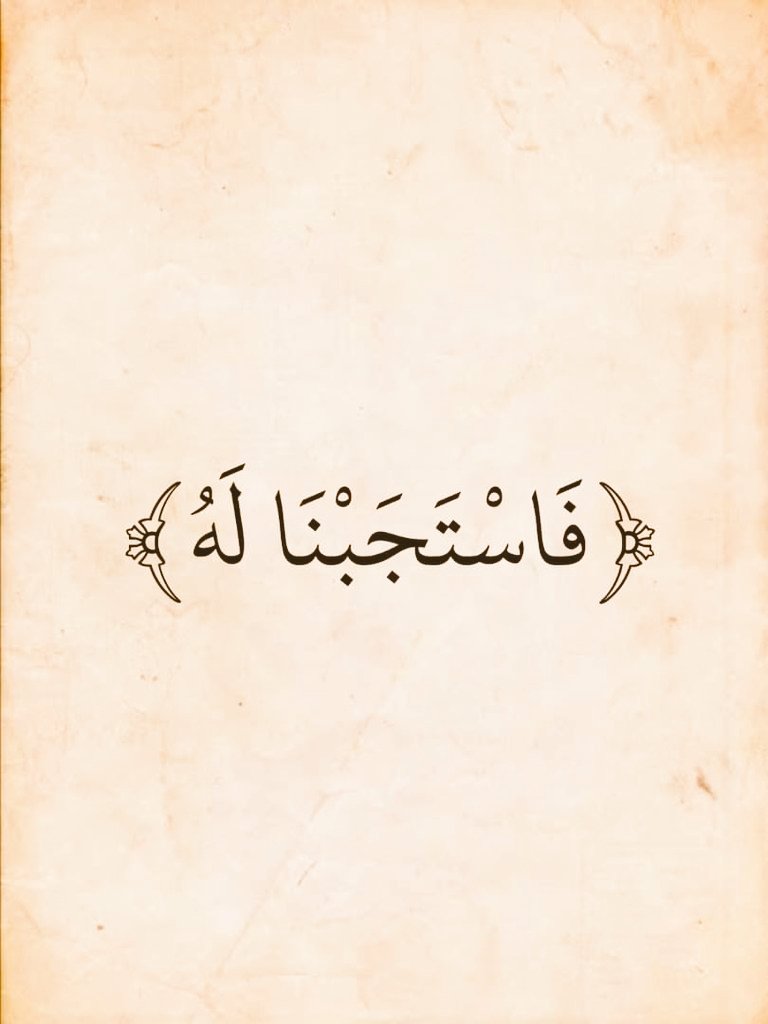 ﴿ فَاسْتَجَبْنَا لَهُ ﴾